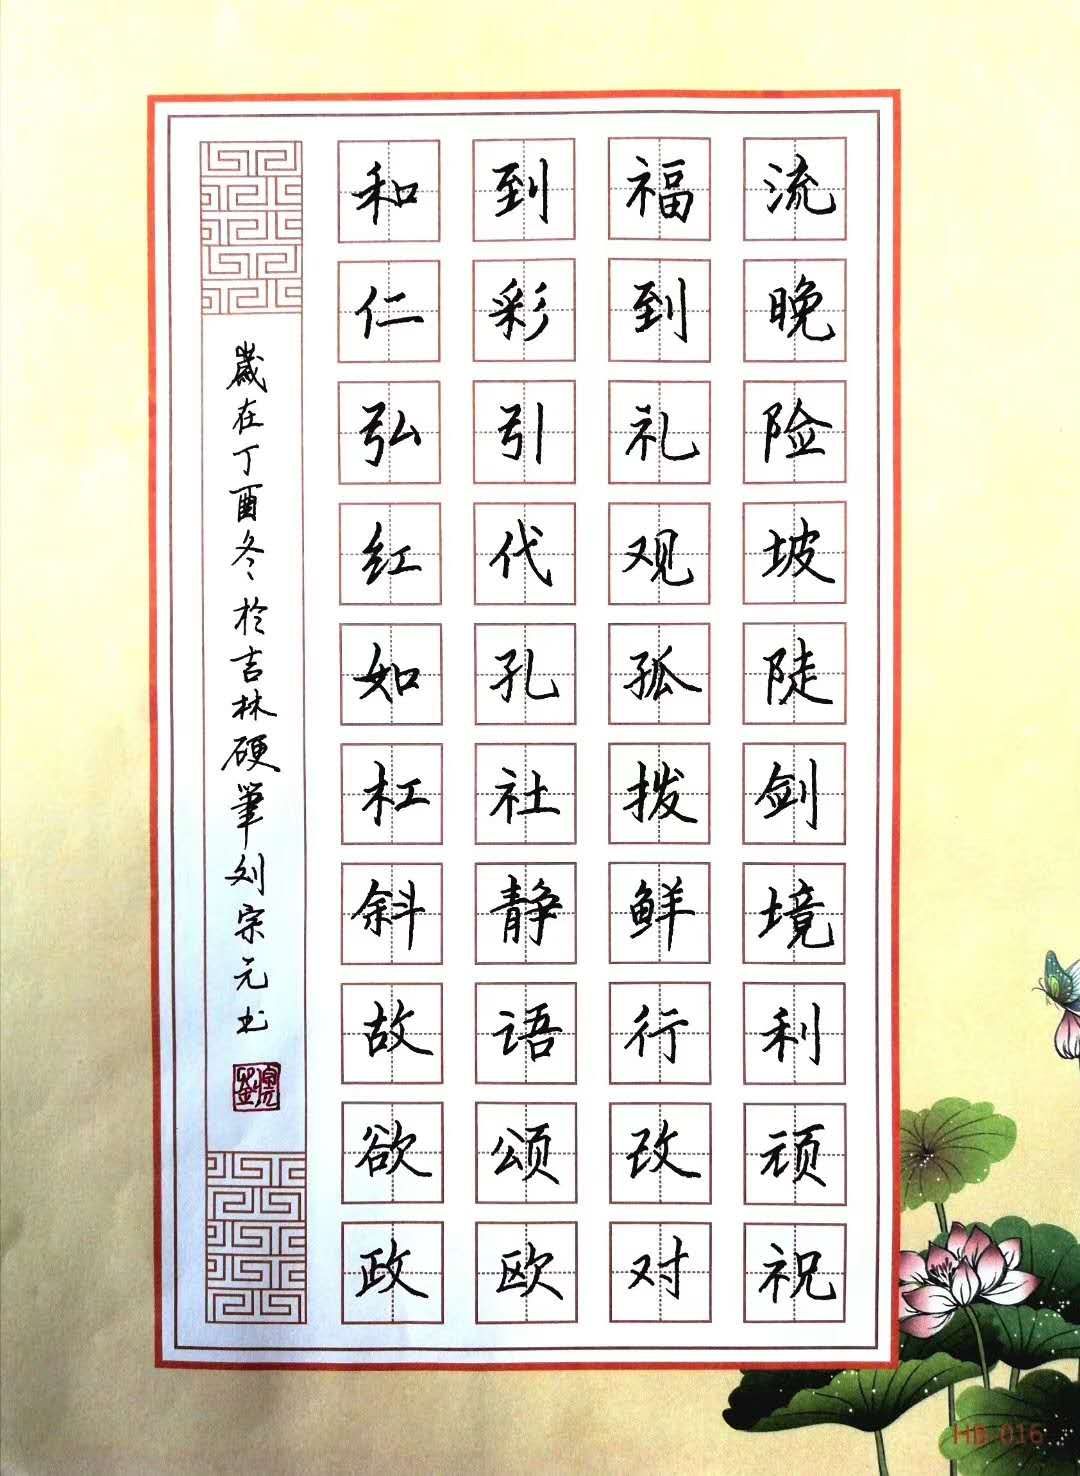 流晚险坡陡剑境利顽祝
福到礼观孤拨鲜行改对
到彩引代孔社静语颂欧
和仁弘红如杠斜故欲政
歲在丁酉冬於吉林硬筆刘宗元书
HB-016